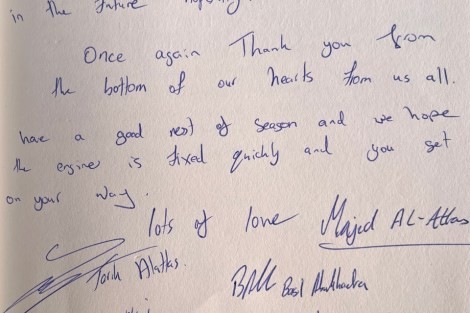 in the future
Once again Thank you from
the bottom of our hearts from us all.
have a good rest of season and we hope
the engine is fixed quickly and you get
on your way.
lots of love Majed AL-Attas
Tarik Alattas.
Basil